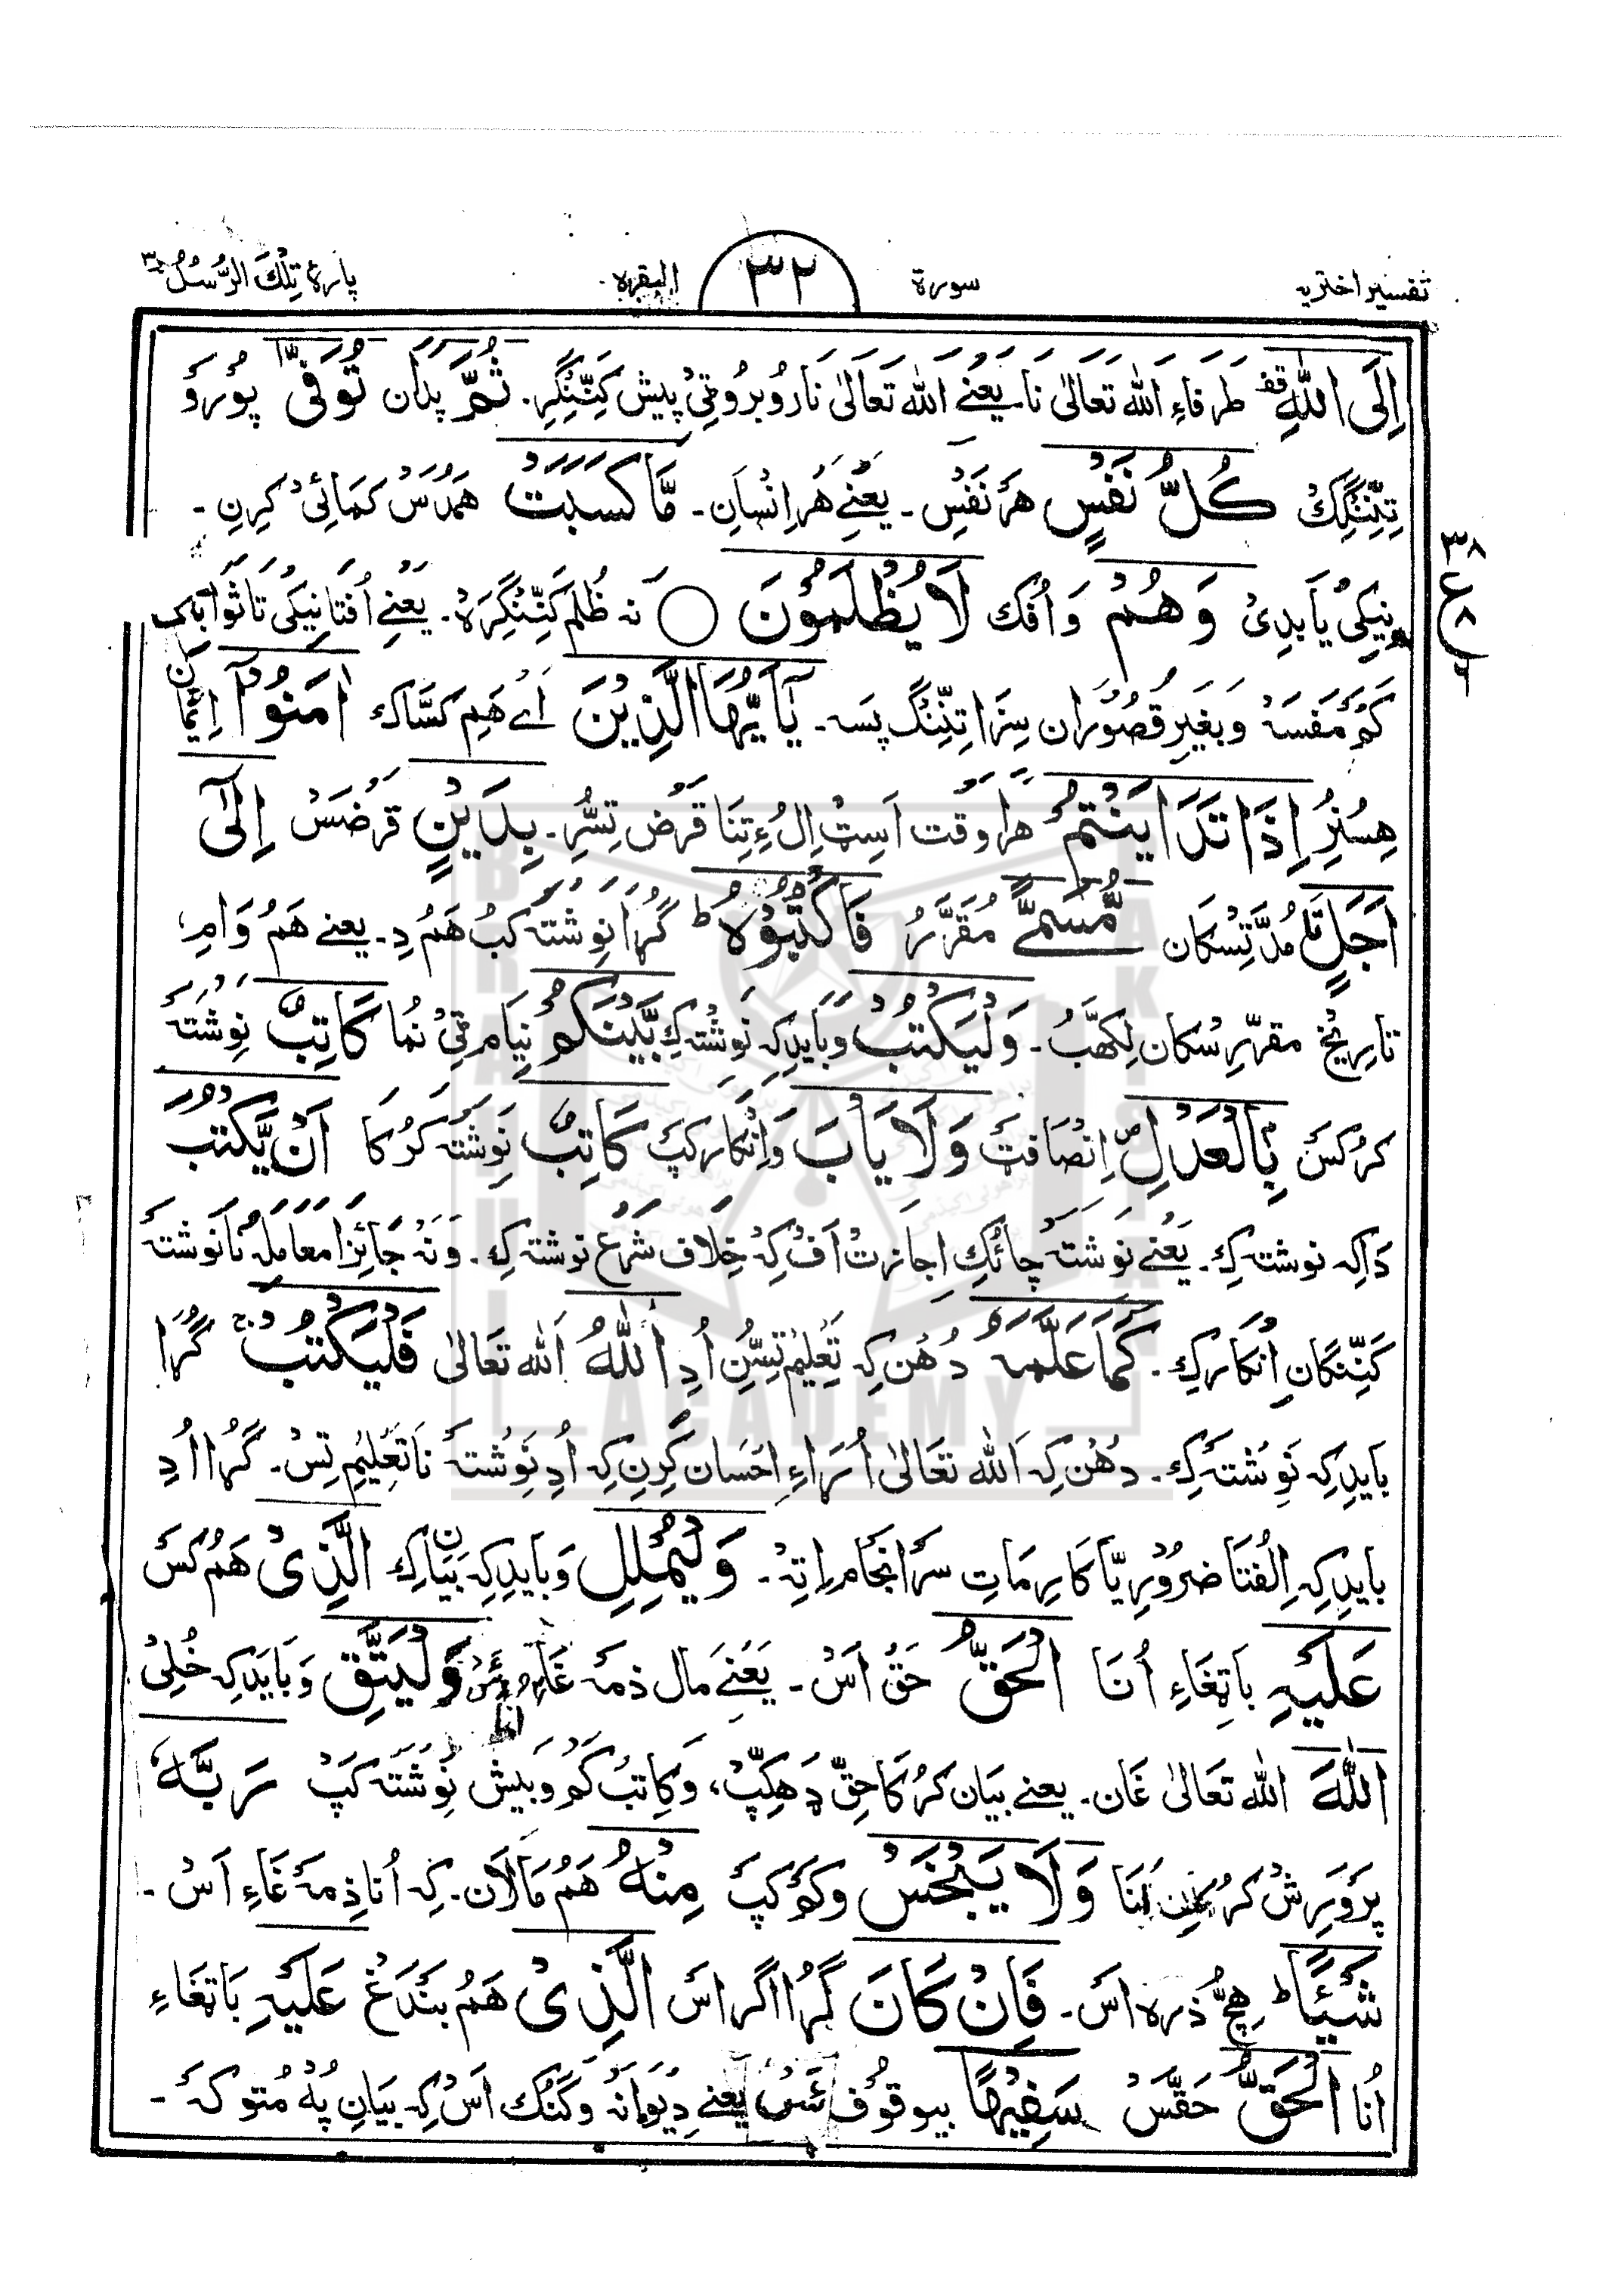 تفسیر اختریہ
سورۃ
۳۲
البقرہ
پارۂ تِلْکَ الرُّسُلُ ۳
اِلَی اللّٰہِ قف طرفاءِ اَللہ تَعَالیٰ نَا۔ یعنے اَللہ تَعَالیٰ نَا رُوبرُو قِیْ پیش کَنِّنْگِر۔ ثُمَّ پدان تُوَفّٰی پُورو
تِنِّنْگِکْ کُلُّ نَفْسٍ ھر نَفَسِ۔ یعنے ھر اِنْسَانِ۔ مَّا کَسَبَتْ ھَمُرَسْ کَمَائِیْ کِرِنِ۔
نِیکِیْ یَا بدِیْ وَھُمْ وَ اُفَک لَا یُظْلَمُوْنَ ۝ نہ ظُلم کَنِّنْگِرَہْ۔ یعنے اُفتَا نیکی تَا ثَوَابَاک
کَمْ مَفَسَہْ وَبَغَیرِ قصُوران سِزَا تِنِّنْگ پَسہ۔ یٰٓاَیُّھَا الَّذِیْنَ اَے ھَم کَسَّاک اٰمَنُوْٓا اِیْمَان
ھِسُنِرْ اِذَا تَدَایَنْتُمْ ھرا وقت اَسِٹ اِلُ ءِ تِنَا قَرض تِسُّرِ۔ بِدَیْنٍ قَرضَسْ اِلٰٓی
اَجَلٍ تا مُدَّتِسْکان مُّسَمًّی مُقَرَّر فَاکْتُبُوْہُ ؕ گُڑا نِوِشتَہ کَبُ ھَمُ دِ۔ یعنے ھَمُ وَامِ
تاریخ مقرّرِسکان لِکھَّبُ۔ وَلْیَکْتُبْ وَبایدِکہ نَوِشتہ کِ بَّیْنَکُمْ نِیام قِیْ نُما کَاتِبٌۢ نِوِشتَہ
کرُکَسَ بِالْعَدْلِ اِنصَافَتْ وَلَا یَابَ وَاِنکار کَپْ کَاتِبٌ نَوِشتَہ کَرُکَا اَنْ یَّکْتُبَ
دَاکِہ نوشتہ کِ۔ یَعنے نَوشتَہ چائک اِجازت اَف کِہ خِلَاف شَرْع نوشتہ کِ۔ وَنَہ جَائِز معاملہ نَا نَوِشتَہ
کَنِّنگانِ اِنکار کِ۔ کَمَا عَلَّمَہُ دُھُن کِہ تَعْلِیْم تِسّنِ اُدِ اللّٰہُ اَللہ تَعَالیٰ فَلْیَکْتُبْ ۚ گُڑا
بایدِ کِہ نَوِشتَہ کِ۔ دُھُن کِہ اَللہ تَعَالیٰ اُرَاءِ اِحسَان کَرِنِ کِہ اُدِ نَوِشْتہ نَا تَعْلِیْم تِسْ۔ گُڑا اُدِ
بایدِ کِہ اِلفتَا ضرُورِیَّا کَارِمَاتِ سَرَ انجَام اِتِہْ۔ وَلْیُمْلِلِ وَبایدِ کِہ بَیَان کِ الَّذِیْ ھَمُ کَسَ
عَلَیْہِ بَاتِغَاءِ اُنَا الْحَقُّ حَقُ اَسْ۔ یَعنے مَال ذمہ غَاءِ اُنا ئَسْ وَلْیَتَّقِ وَبایدِ کِہ خُلِیْ
اللّٰہَ اللہ تَعَالیٰ غَان۔ یعنے بَیَان کرُکَا حَقّ ڈَھِکّپْ، وَکاتِبُ کَم وبیش نِوِشتَہ کَپْ رَبَّہٗ
پَروَرِش کرُکان اُنَا وَلَا یَبْخَسْ وَکَم کَپَ مِنْہُ ھَمُ مَالَان۔ کہ اُنا ذِمَہ غَاءِ اَسْ۔
شَیْئًا ؕ ھِچُّ ذرہ اَسَ۔ فَاِنْ کَانَ گُڑا اگر اَسَ الَّذِیْ ھَمُ بَندَغْ عَلَیْہِ بَاتغَاءِ
اُنا الْحَقُّ حَقَّسْ سَفِیْھًا بیوقُوف ئَسْ یعنے دِیوانَہ وَکَنُّک اَسْ کِہ بَیَان پہ مُتوکہ۔
۳۸
ع
۸
۶